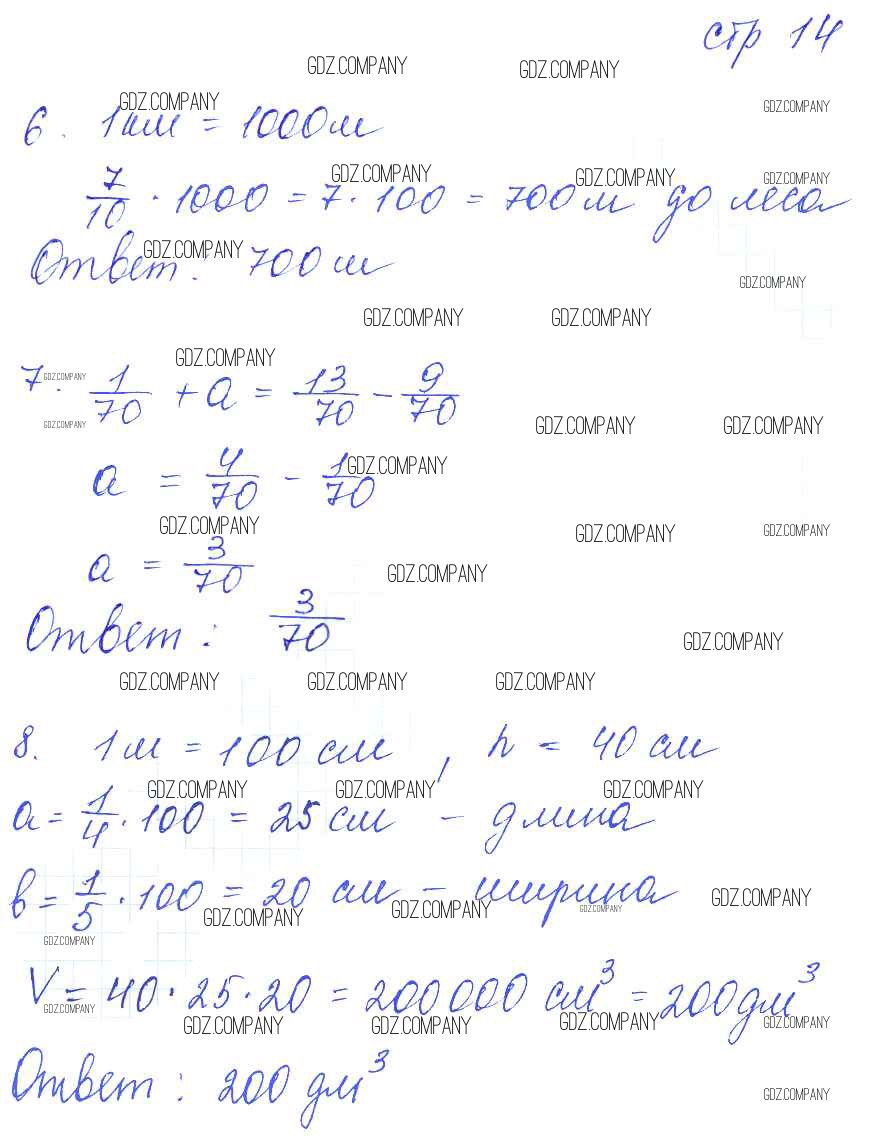 стр 14
6. 1км = 1000м
7/10 · 1000 = 7 · 100 = 700м до леса
Ответ: 700м
7. 1/70 + a = 13/70 - 9/70
a = 4/70 - 1/70
a = 3/70
Ответ: 3/70
8. 1м = 100 см, h = 40 см
a = 1/4 · 100 = 25 см - длина
b = 1/5 · 100 = 20 см - ширина
V = 40 · 25 · 20 = 200000 см³ = 200 дм³
Ответ: 200 дм³
GDZ.COMPANY